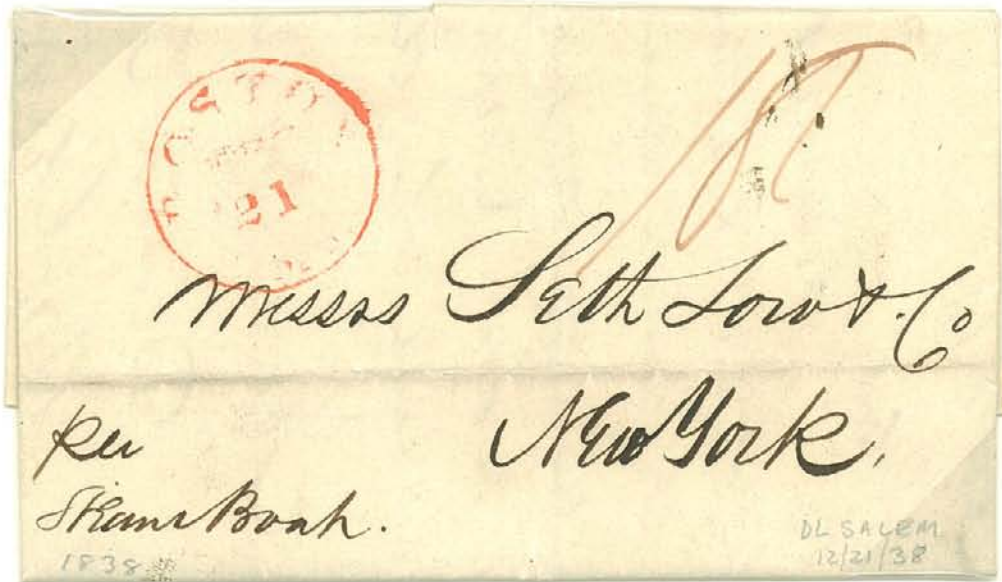 BOSTON
21
Messrs Seth Low & Co
New York.
Per
Steam Boat.
1838
DL SALEM
12/21/38